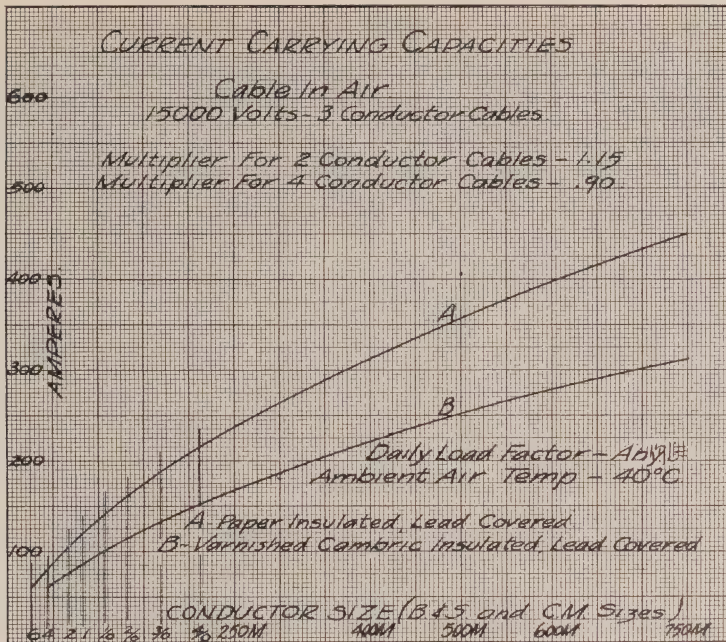 CURRENT CARRYING CAPACITIES
Cable In Air
15000 Volts - 3 Conductor Cables
Multiplier For 2 Conductor Cables - 1.15
Multiplier For 4 Conductor Cables - .90
600
500
400
300
200
100
AMPERES.
A
B
Daily Load Factor -
Ambient Air Temp - 40°C
A - Paper Insulated, Lead Covered
B - Varnished Cambric Insulated, Lead Covered
CONDUCTOR SIZE (B & S and C.M. Sizes)
6 4 2 1 1/0 2/0 3/0 4/0 250M 400M 500M 600M 750M